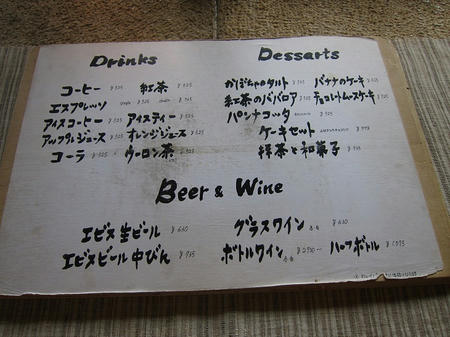 Drinks
コーヒー ¥525 紅茶 ¥525
エスプレッソ
アイスコーヒー ¥525 アイスティー ¥525
アップルジュース ¥525 オレンジジュース ¥525
コーラ ¥525 ウーロン茶 ¥525
Dessarts
かぼちゃのタルト バナナのケーキ
紅茶のババロア チョコレートムースケーキ
パンナコッタ
ケーキセット
抹茶と和菓子
Beer & Wine
エビス生ビール ¥630
エビスビール中びん ¥735
グラスワイン ¥630
ボトルワイン ハーフボトル